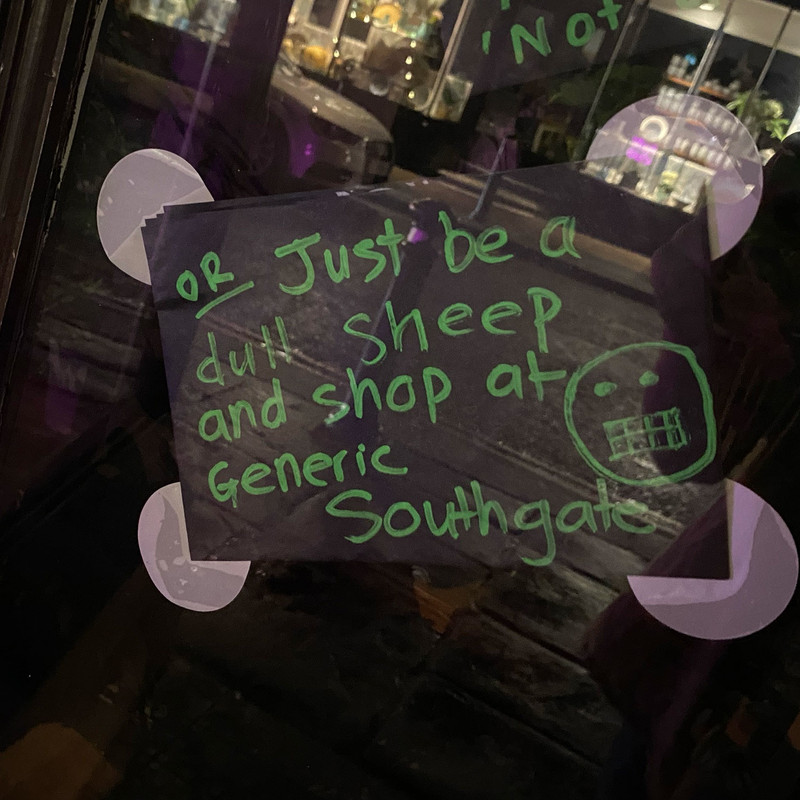 'Not
OR Just be a
dull sheep
and shop at
Generic
Southgate